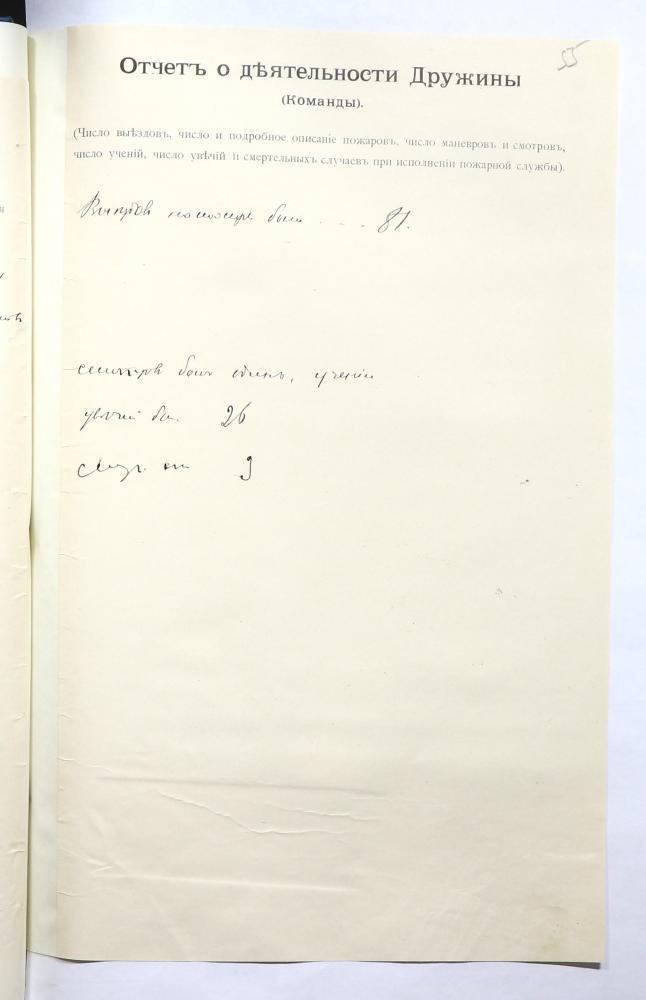 55
Отчетъ о дѣятельности Дружины
(Команды).
(Число выѣздовъ, число и подробное описаніе пожаровъ, число маневровъ и смотровъ,
число ученій, число увѣчій и смертельныхъ случаевъ при исполненіи пожарной службы).
было . . . 81.
смотров был один, учении
увечий бы. 26
9